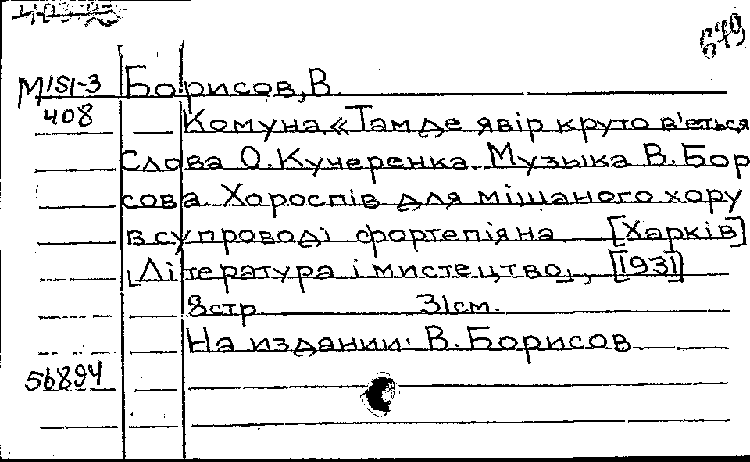 679
М ІSІ-3 Борисов, В.
408 Комуна «Там де явір круто в'ється
Слова О. Кучеренка. Музыка В. Бор
сова. Хороспів для мішаного хору
в супроводі фортепіяна [Харків]
[Література і мистецтво], [1931]
8 стр 31 см.
На издании: В. Борисов
56894